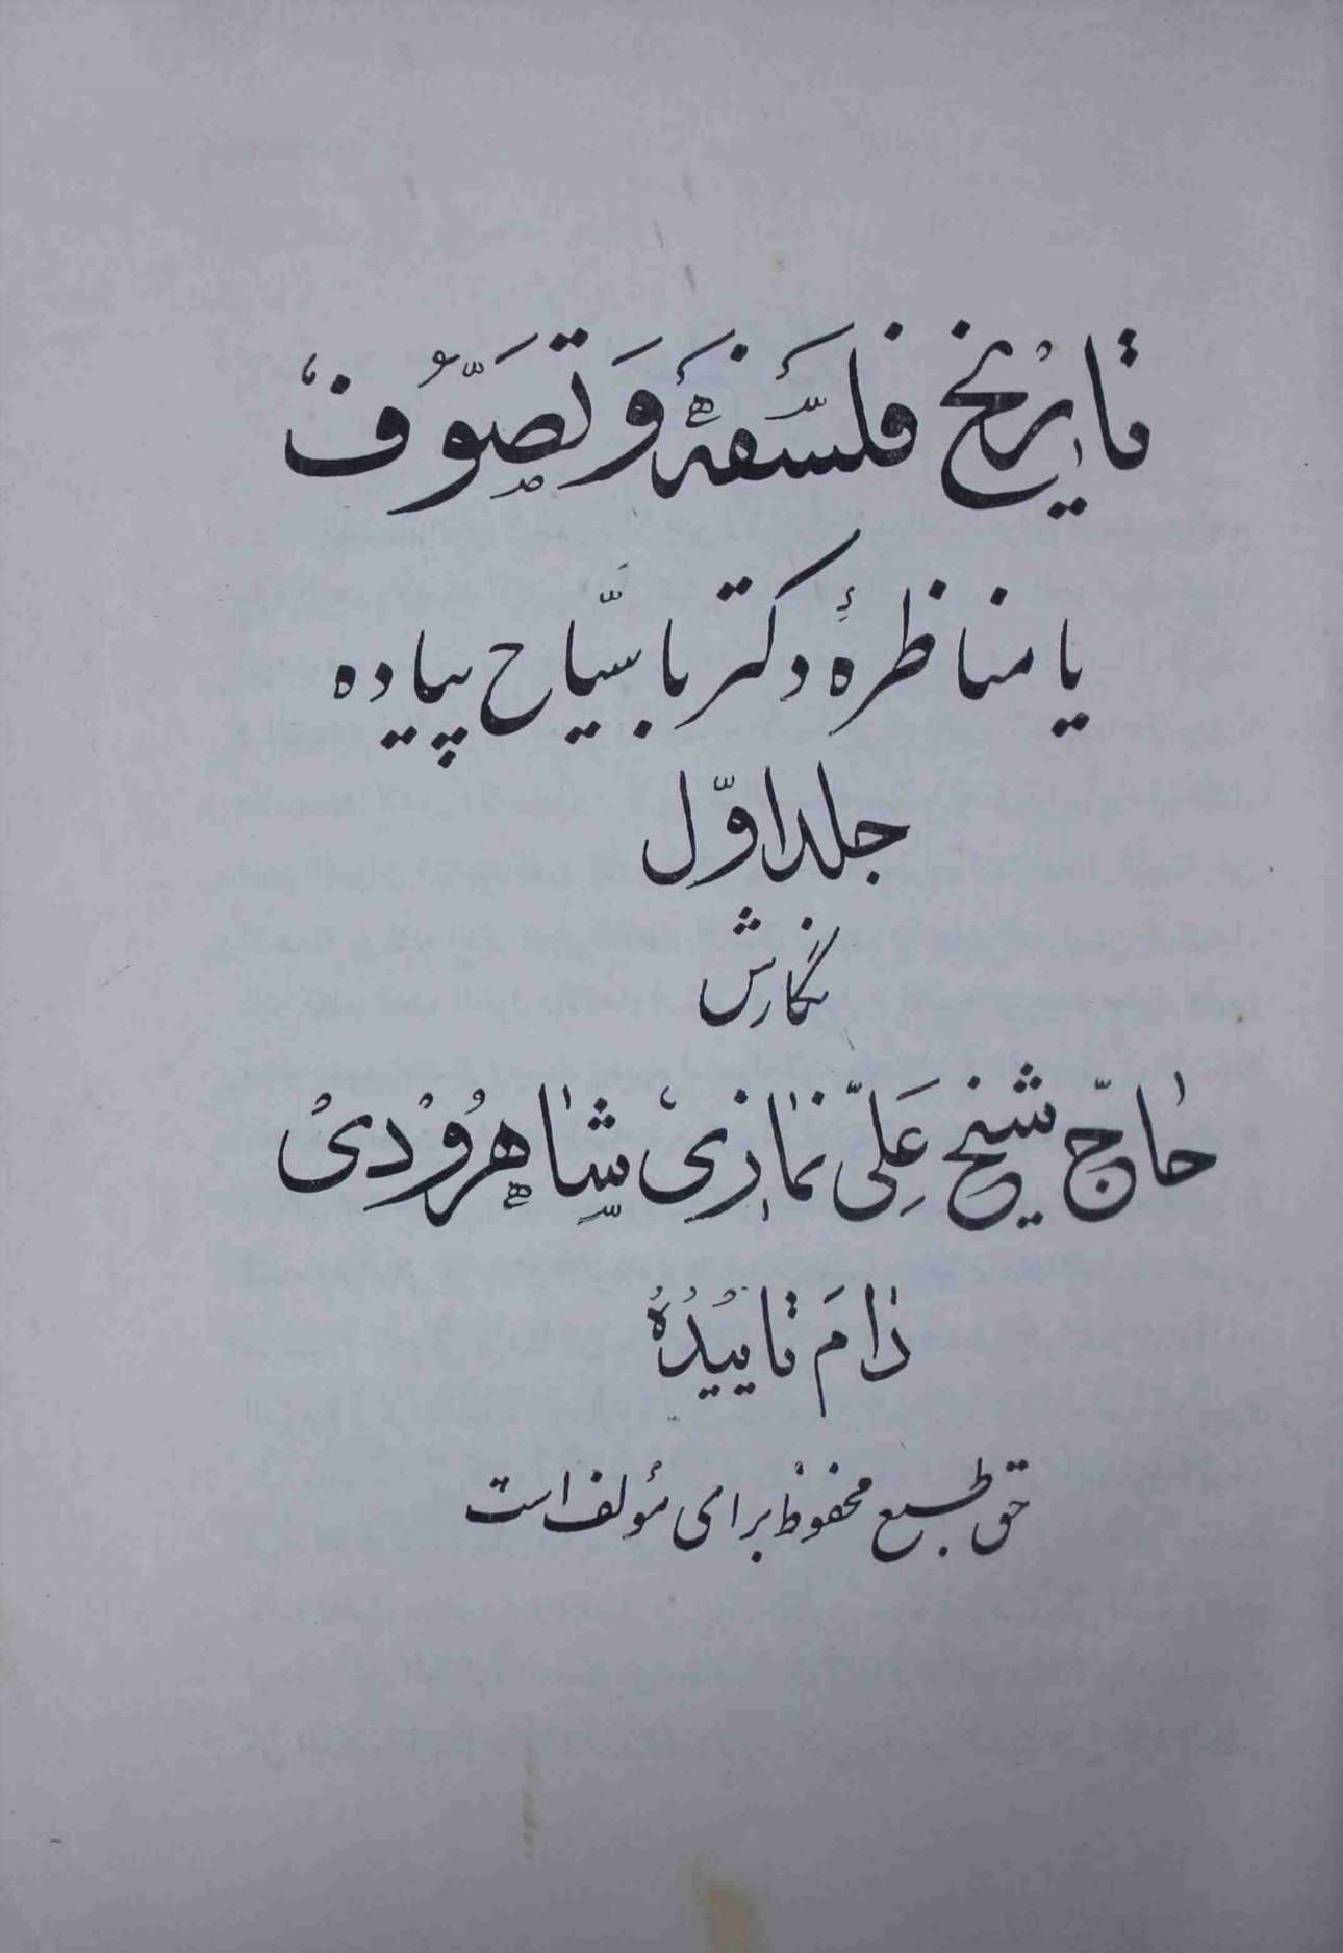 تاریخ فلسفه و تصوّف
یا مناظرهٔ دکتر با سیّاح پیاده
جلد اوّل
نگارش
حاجّ شیخ علیّ نمازی شاهرودی
دام تاییده
حق طبع محفوظ برای مؤلف است